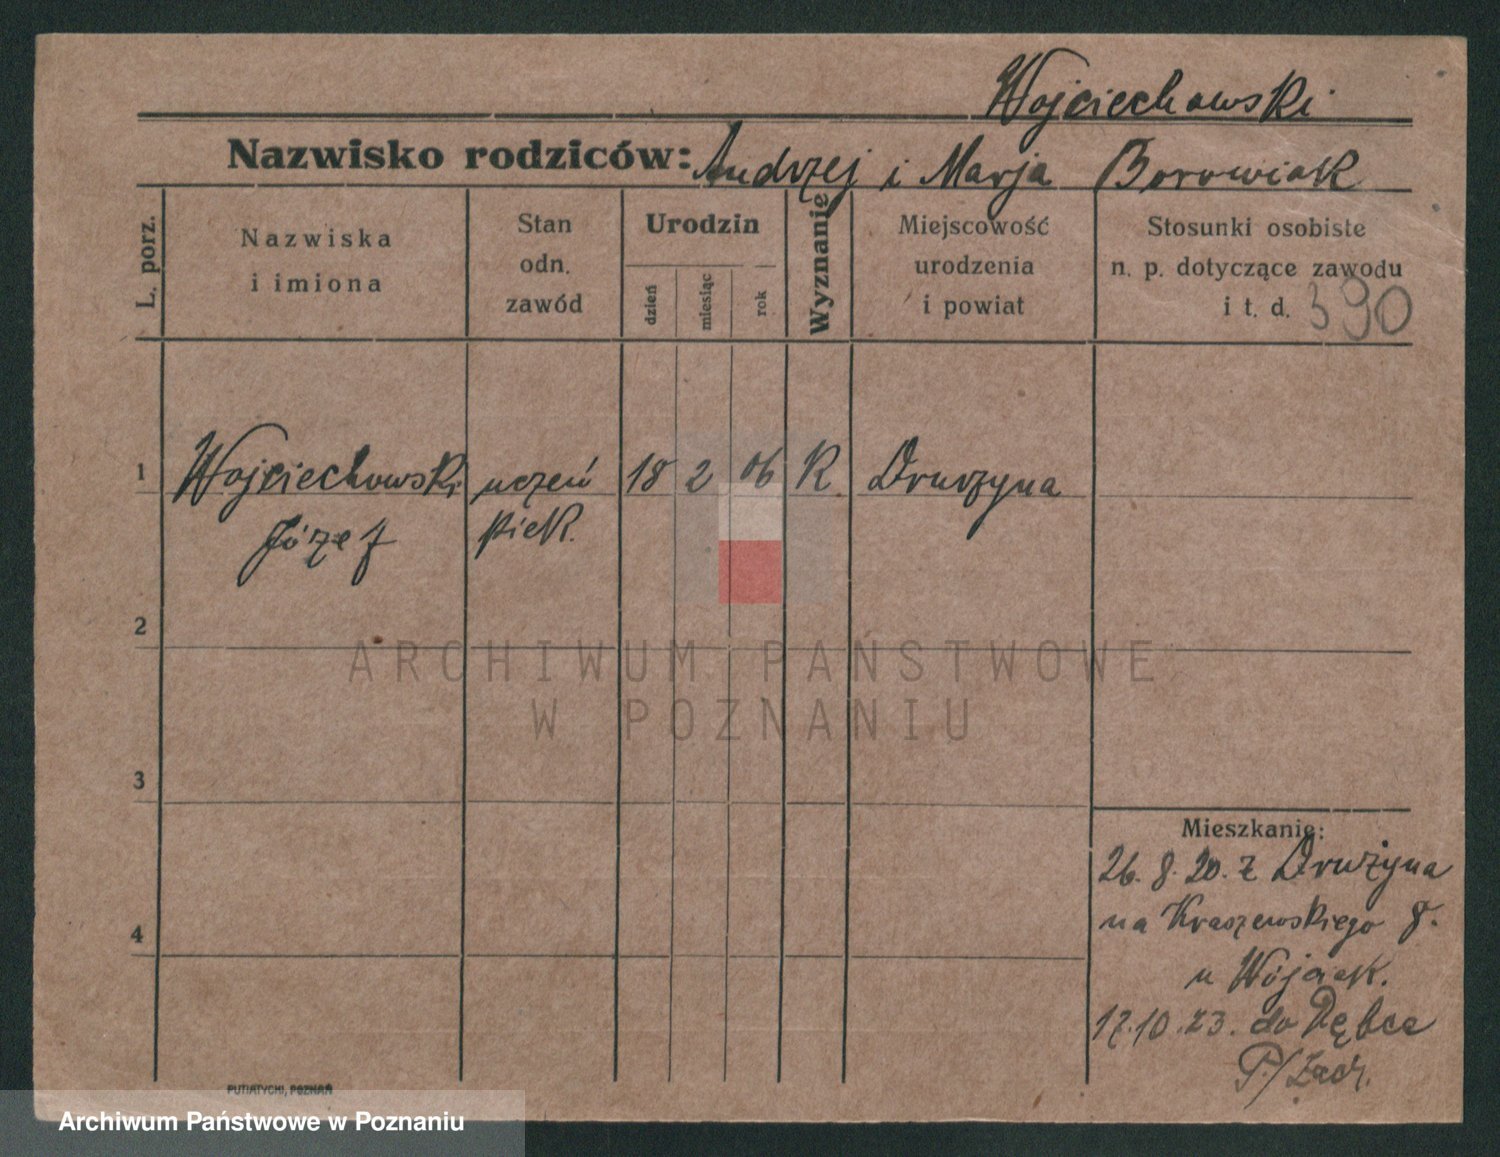 Wojciechowski
Nazwisko rodziców: Andrzej i Marja Borowiak
L. porz.
Nazwiska
i imiona
Stan
odn.
zawód
Urodzin
dzień
miesiąc
rok
Wyznanie
Miejscowość
urodzenia
i powiat
Stosunki osobiste
n. p. dotyczące zawodu
i t. d. 390
1 Wojciechowski uczeń 18 2 06 K Drużyna
Józef piek.
2
3
4
Mieszkanie:
26. 8. 20. z Drużyna
na Kraszewskiego 8.
u Wojciak.
17.10.23. do Dębca
P./Zach.
PUTIATYCKI, POZNAŃ
ARCHIWUM PAŃSTWOWE
W POZNANIU
Archiwum Państwowe w Poznaniu